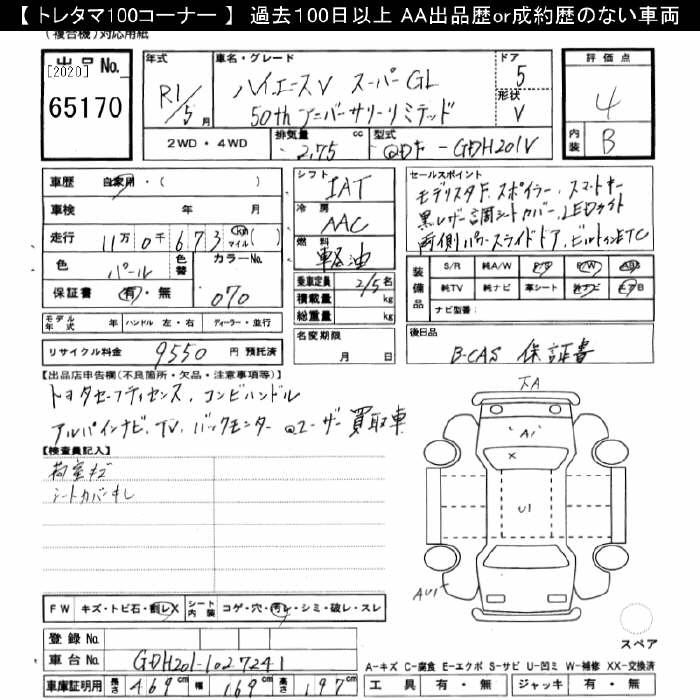 【 トレタマ100コーナー 】 過去100日以上 AA出品歴or成約歴のない車両
(複合機)対応用紙
出品No.
[2020]
65170
年式
R1/5月
車名・グレード
ハイエースV スーパーGL
50th アニバーサリーリミテッド
ドア
5
形状
V
評価点
4
内装
B
2WD・4WD
排気量 cc
2.75
型式
QDF-GDH201V
車歴 自家用・( )
車検 年 月
走行 11万0千673 km マイル( )
色 パール
色替
カラーNo. 070
保証書 有・無
シフト IAT
冷房 AAC
燃料 軽油
乗車定員 2/5名
積載量 kg
総重量 kg
名変期限
月 日
セールスポイント
モデリスタF.スポイラー、スマートキー
黒レザー調シートカバー、LEDライト
両側パワースライドドア、ビルトインETC
装備品
S/R 純A/W P/S P/W ABS
純TV 純ナビ 革シート 社ナビ エアB
ナビ型番:
モデル年式 年 ハンドル 左・右 ディーラー・並行
リサイクル料金 9550 円 預託済
後日品
B-CAS 保証書
【出品店申告欄(不良箇所・欠品・注意事項等)】
トヨタセーフティセンス、コンビハンドル
アルパインナビ、TV、バックモニター @ユーザー買取車
【検査員記入】
荷室キズ
シートカバーキレ
天A
A1
X
U1
AU1
FW キズ・トビ石・割レX シート内装 コゲ・穴・汚レ・シミ・破レ・スレ
スペア
登録No.
車台No. GDH201-1027241
車庫証明用 長さ 469cm 幅 169cm 高さ 197cm
A-キズ C-腐食 E-エクボ S-サビ U-凹ミ W-補修 XX-交換済
工具 有・無 ジャッキ 有・無